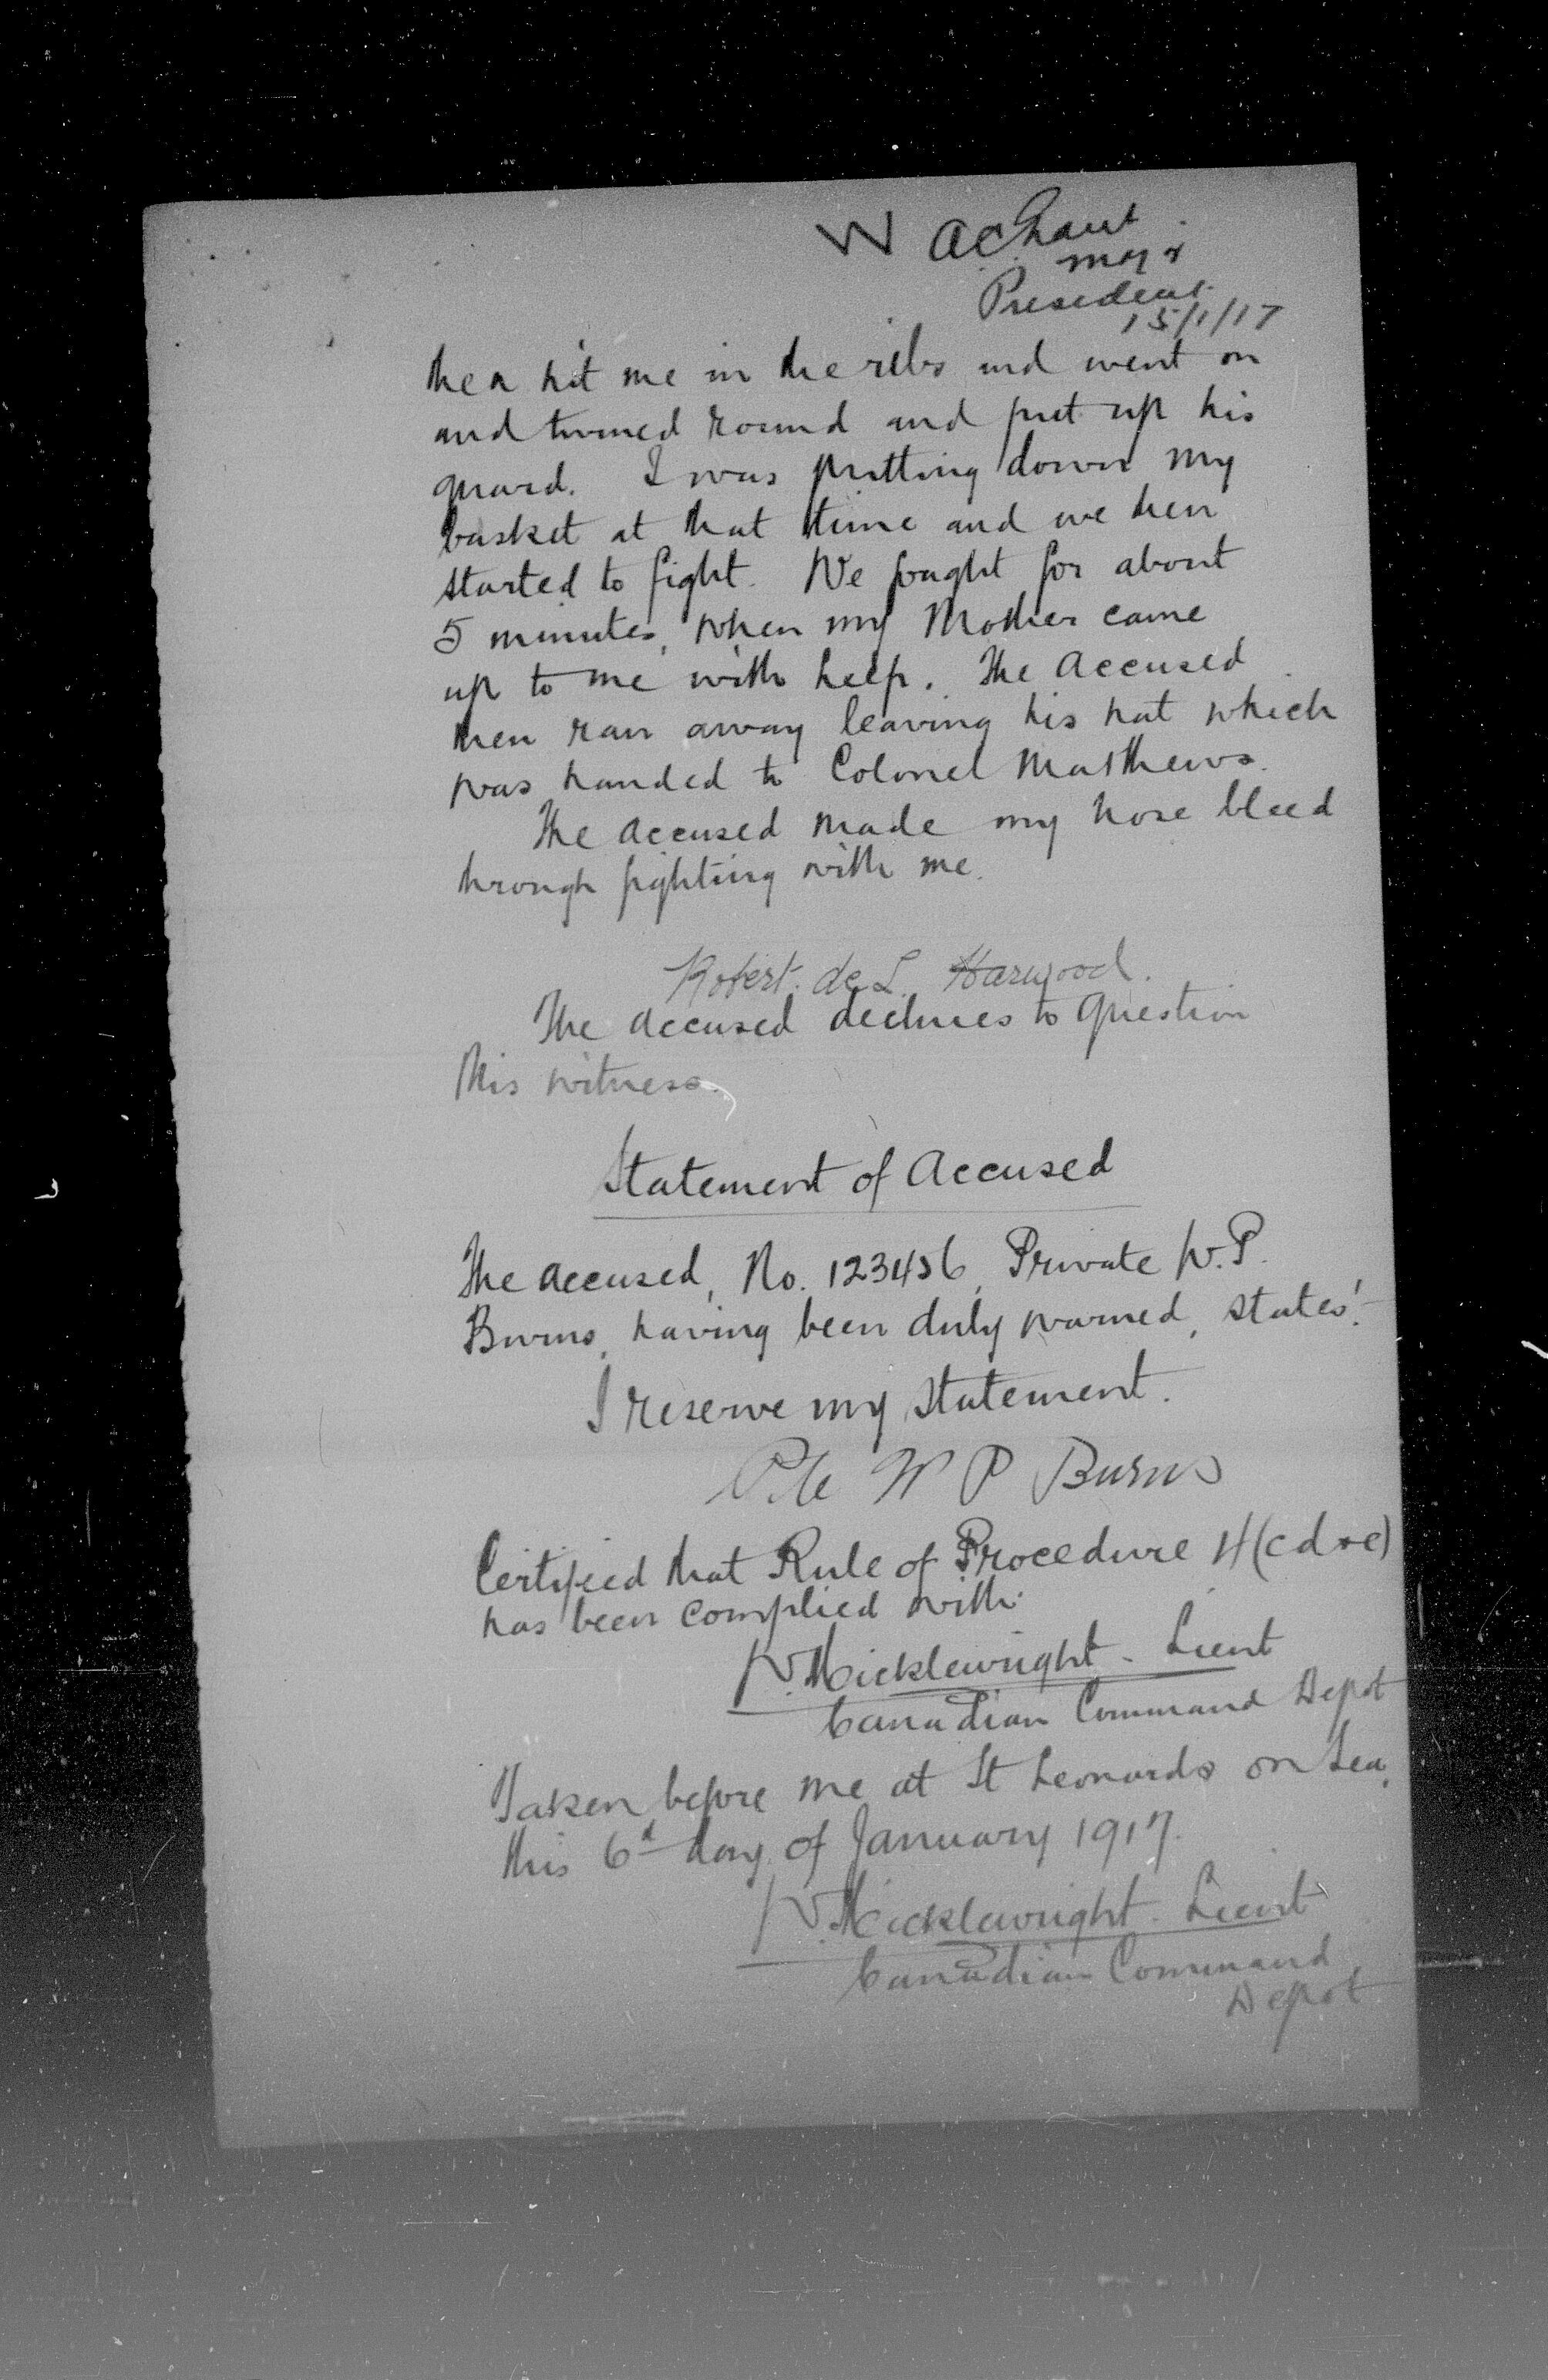 W A Chant
Major
President
15/1/17
then hit me in the ribs and went on
and turned round and put up his
guard. I was putting down my
basket at that time and we then
started to fight. We fought for about
5 minutes, when my Mother came
up to me with help. The Accused
then ran away leaving his hat which
was handed to Colonel Matthews.
The Accused made my nose bleed
through fighting with me.
Robert de L. Harwood.
The Accused declines to question
this witness.
Statement of Accused
The Accused, No. 123456, Private W.P.
Burns, having been duly warned, states:-
I reserve my statement.
Pte W P Burns
Certified that Rule of Procedure 4(c d & e)
has been complied with.
W. Micklewright - Lieut
Canadian Command Depot
Taken before me at St Leonards on Sea,
this 6th day of January 1917.
W. Micklewright - Lieut
Canadian Command
Depot